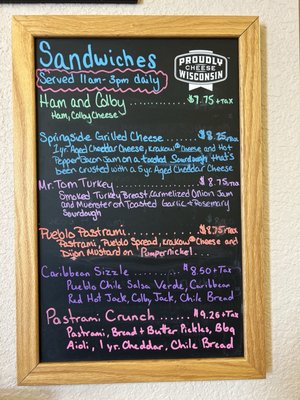 Sandwiches
Served 11am-3pm daily
PROUDLY
CHEESE
WISCONSIN
Ham and Colby ............ $7.75 +TAX
Ham, Colby Cheese
Springside Grilled Cheese ........ $8.25 +TAX
1 yr. Aged Cheddar Cheese, Krakow® Cheese and Hot
Pepper Bacon Jam on a toasted Sourdough that's
been crusted with a 6 yr Aged Cheddar Cheese
Mr. Tom Turkey ............ $8.75 +TAX
Smoked Turkey Breast, Carmelized Onion Jam
and Muenster on Toasted Garlic + Rosemary
Sourdough
Pueblo Pastrami ............ $8.75 +TAX
Pastrami, Pueblo Spread, Krakow® Cheese and
Dijon Mustard on Pumpernickel...
Caribbean Sizzle ............ $8.50 +Tax
Pueblo Chile Salsa Verde, Caribbean
Red Hot Jack, Colby Jack, Chile Bread
Pastrami Crunch ...... $9.26 +Tax
Pastrami, Bread + Butter Pickles, Bbq
Aioli, 1 yr. Cheddar, Chile Bread